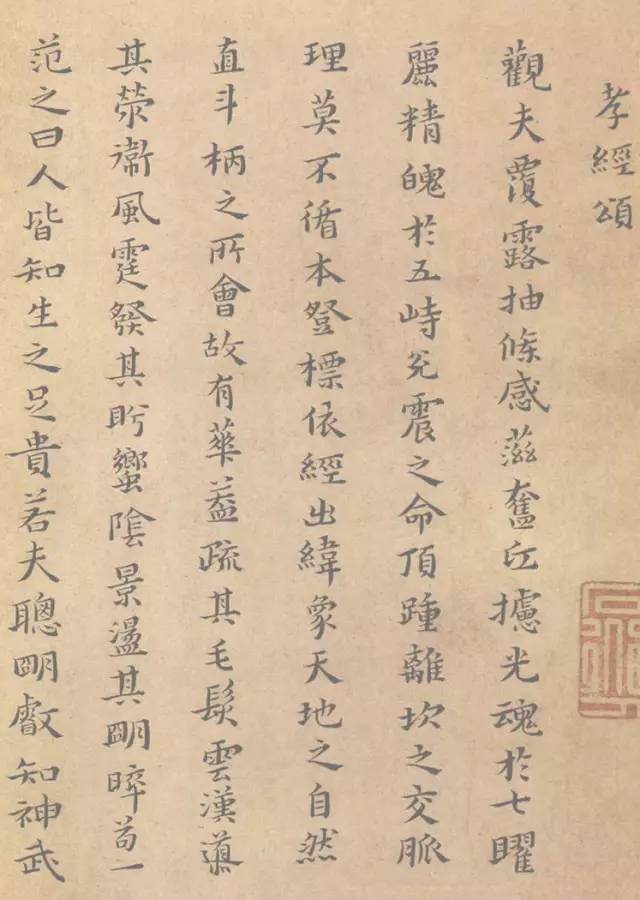 孝經頌
觀夫覆露抽條感滋奮
攄光魂於七曜
麗精魄於五峙兌震之命頂踵離坎之交脈
理莫不循本登標依經出緯象天地之自然
直斗柄之所會故有華蓋疏其毛髮雲漢導
其滎衛風霆發其肸蠁陰景盪其明晬苟一
范之曰人皆知生之足貴若夫聰明叡知神武